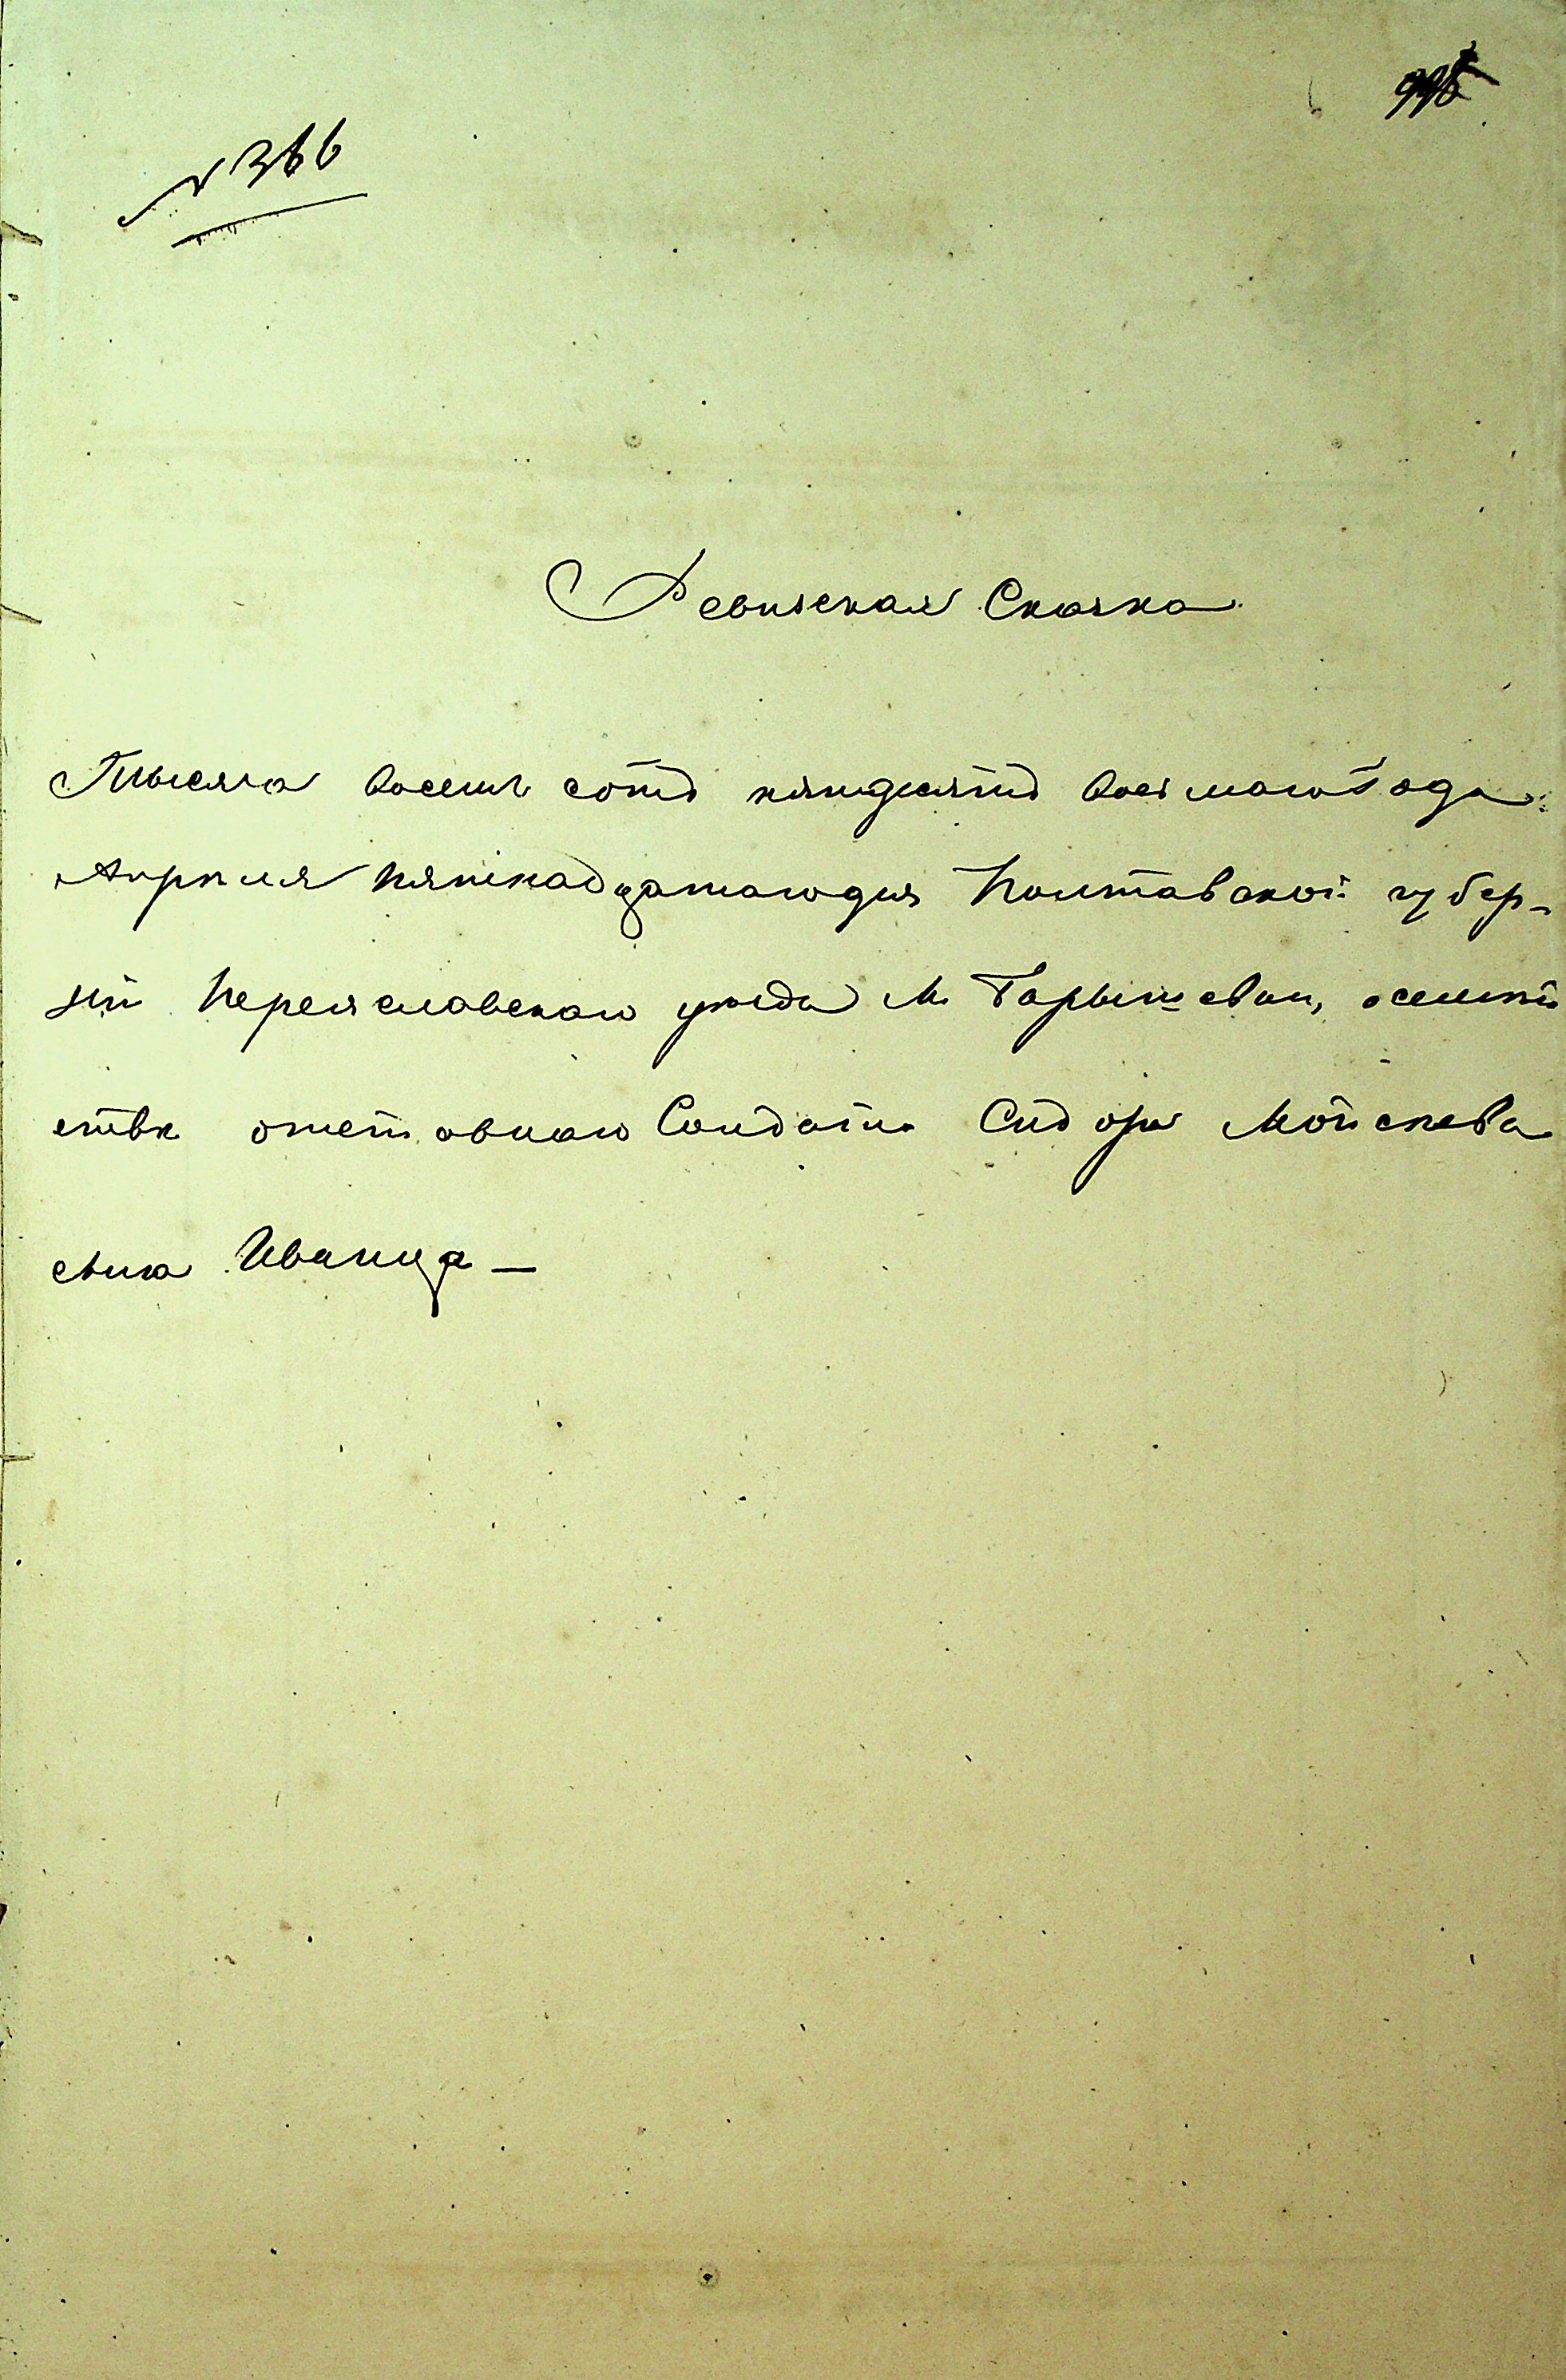 № 366
Ревизская Сказка
Тысяча восемь сотъ пятдесятъ восмаго Года
Апреля пятнадцатаго дня Полтавской губер-
ніи Переяславскаго уезда М. Гарышевки, о семей
стве отставнаго Солдата Сидора Мойсеева
сына Иваница —